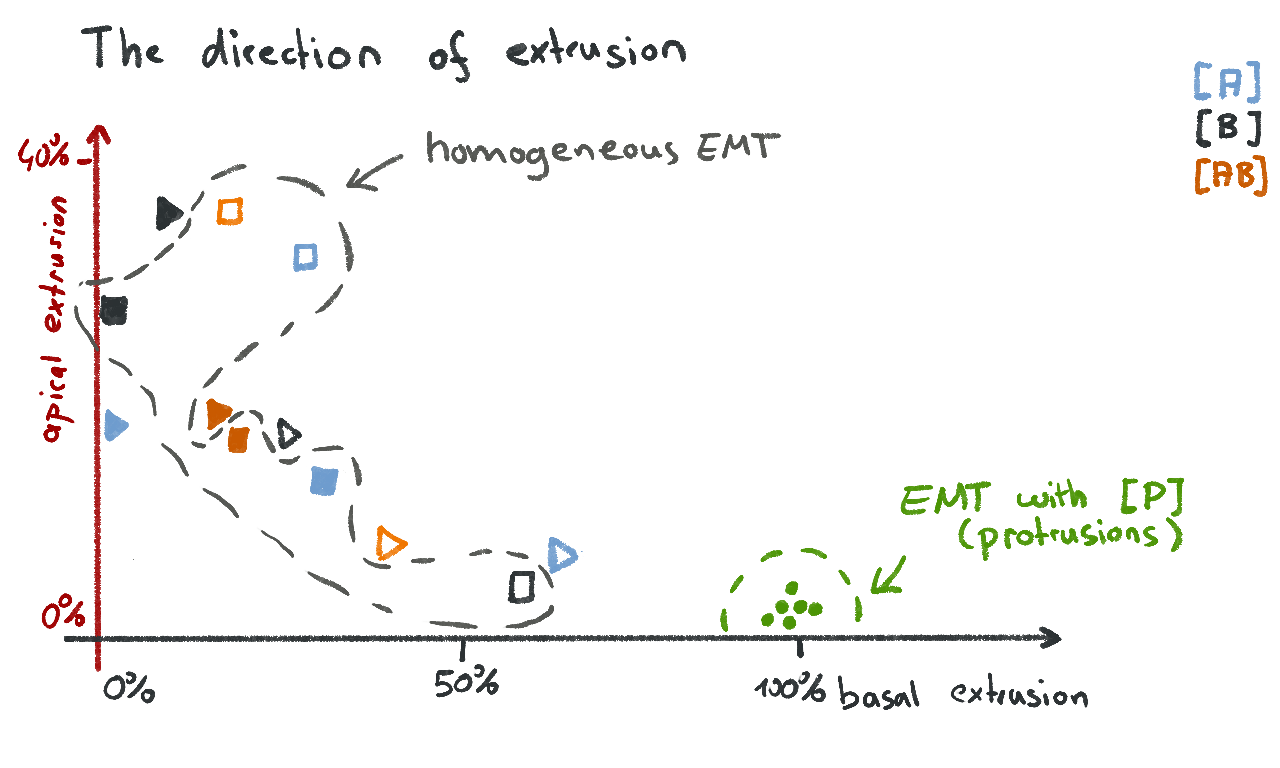 The direction of extrusion
[A]
[B]
[AB]
40%
homogeneous EMT
apical extrusion
EMT with [P]
(protrusions)
0%
0%
50%
100%
basal extrusion